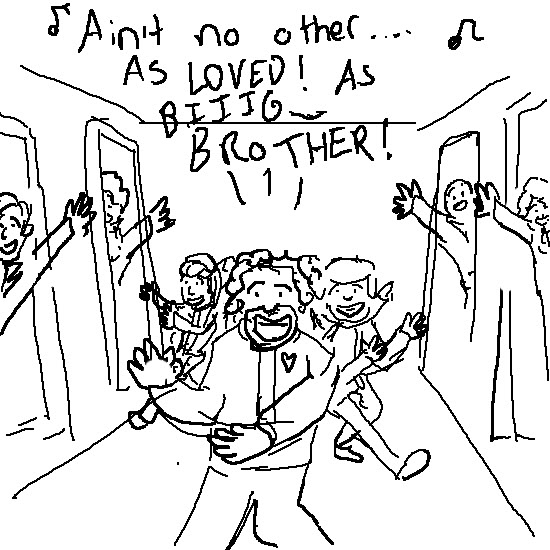 Ain't no other....
AS LOVED! AS
BIIIG
BROTHER!